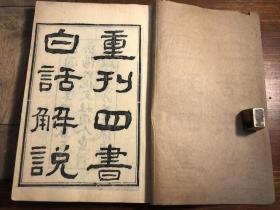 重刊四書
白話解說